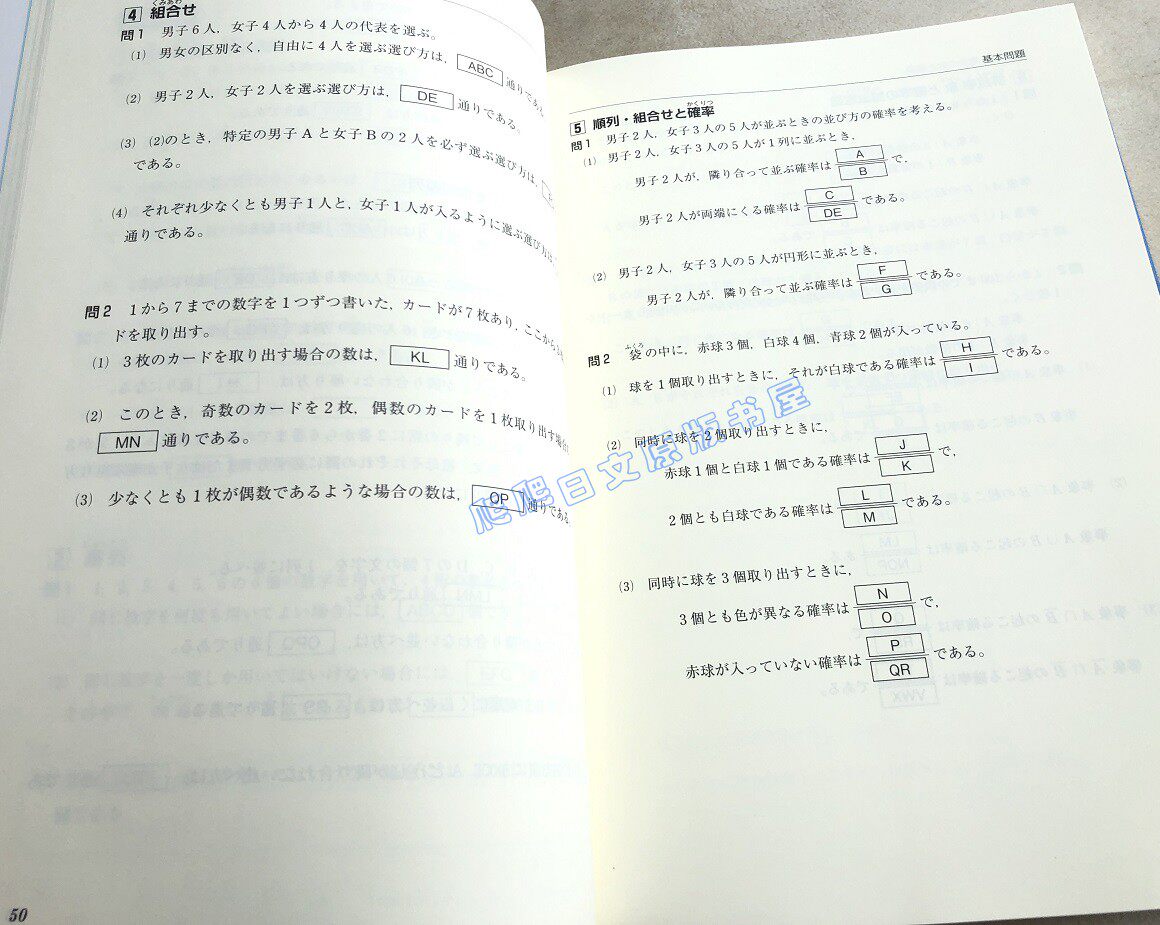 4 組合せ
くみあわ
問1 男子6人，女子4人から4人の代表を選ぶ。
(1) 男女の区別なく，自由に4人を選ぶ選び方は， ABC 通りであ
(2) 男子2人，女子2人を選ぶ選び方は， DE 通りである。
(3) (2)のとき，特定の男子Aと女子Bの2人を必ず選ぶ選び方は，
である。
(4) それぞれ少なくとも男子1人と，女子1人が入るように選ぶ選び方は
通りである。
問2 1から7までの数字を1つずつ書いた，カードが7枚あり，ここから3
ドを取り出す。
(1) 3枚のカードを取り出す場合の数は， KL 通りである。
(2) このとき，奇数のカードを2枚，偶数のカードを1枚取り出す場合
MN 通りである。
(3) 少なくとも1枚が偶数であるような場合の数は， OP 通りである
50
基本問題
かくりつ
5 順列・組合せと確率
問1 男子2人，女子3人の5人が並ぶときの並び方の確率を考える。
(1) 男子2人，女子3人の5人が1列に並ぶとき，
男子2人が，隣り合って並ぶ確率は A/B で，
男子2人が両端にくる確率は C/DE である。
(2) 男子2人，女子3人の5人が円形に並ぶとき，
男子2人が，隣り合って並ぶ確率は F/G である。
ふくろ
問2 袋の中に，赤球3個，白球4個，青球2個が入っている。
(1) 球を1個取り出すときに，それが白球である確率は H/I である。
(2) 同時に球を2個取り出すときに，
赤球1個と白球1個である確率は J/K で，
2個とも白球である確率は L/M である。
(3) 同時に球を3個取り出すときに，
3個とも色が異なる確率は N/O で，
赤球が入っていない確率は P/QR である。
爬爬日文原版书屋